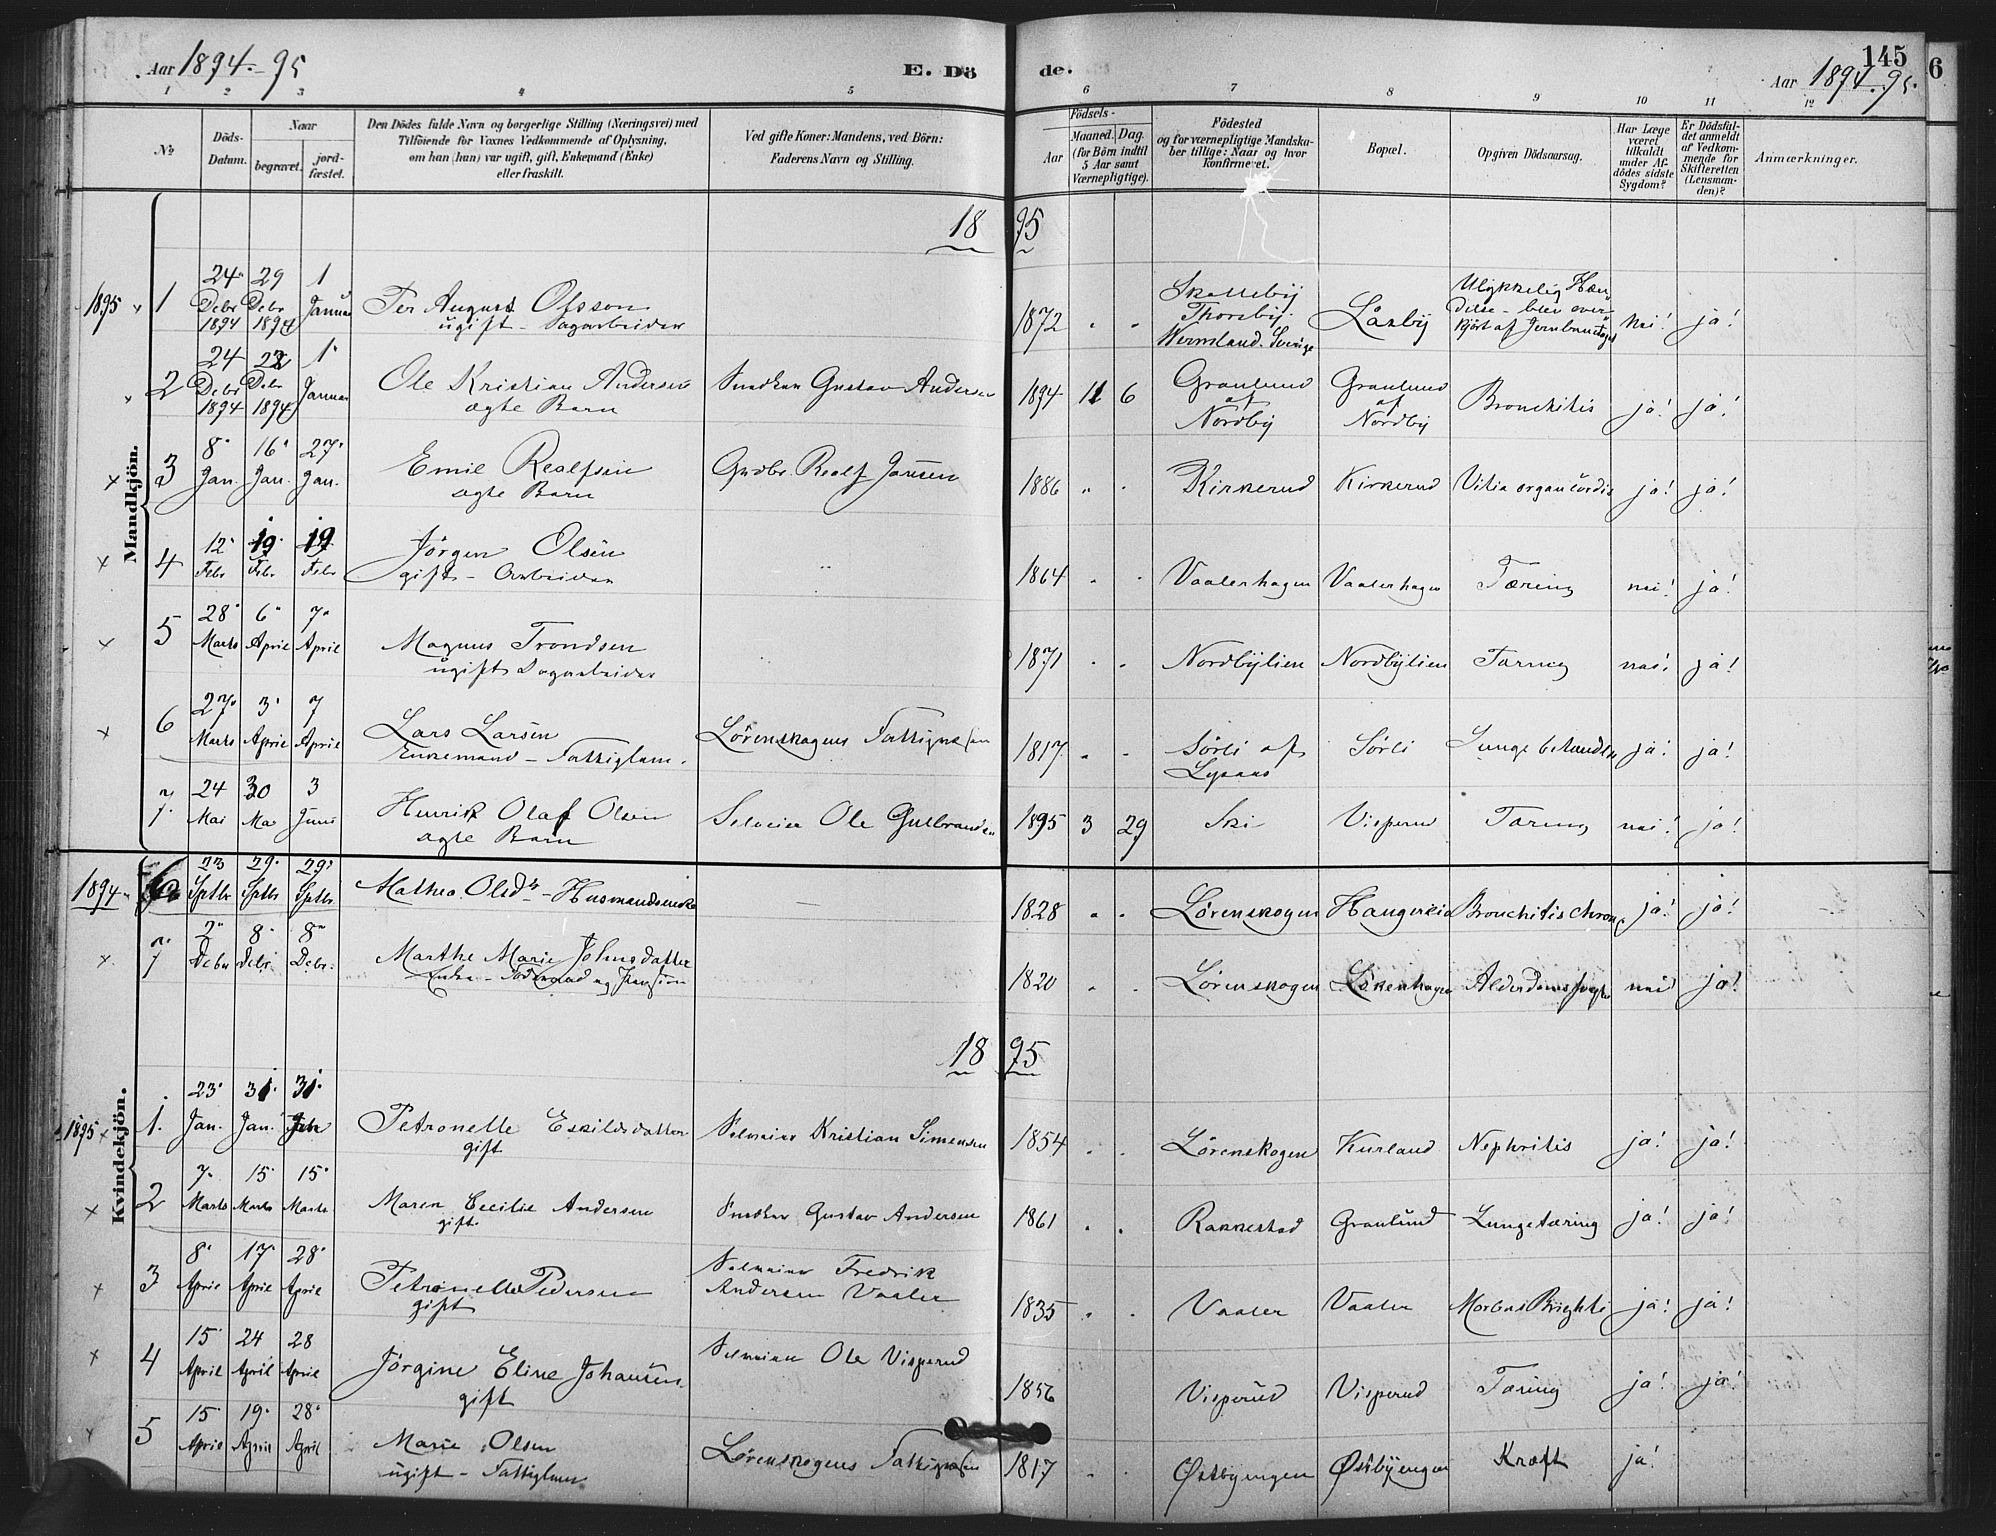 Aar 1894.-95
E. Dö
de.
145
6
Aar 1894.-95.
1 2 3 4 5 6 7 8 9 10 11 12
No
Döds-Datum.
Naar
begravet.
jord-fæstet.
Den Dödes fulde Navn og borgerlige Stilling (Næringsvei) med
Tilföiende for Voxnes Vedkommende af Oplysning,
om han (hun) var ugift, gift, Enkemand (Enke)
eller fraskilt.
Ved gifte Koner: Mandens, ved Börn:
Faderens Navn og Stilling.
Födsels-
Aar
Maaned. Dag.
(for Börn indtil
5 Aar samt
Værnepligtige).
Födested
og for værnepligtige Mandska-
ber tillige: Naar og hvor
konfirmeret.
Bopæl.
Opgiven Dödsaarsag.
Har Læge
været
tilkaldt
under Af-
dödes sidste
Sygdom?
Er Dödsfal-
det anmeldt
af Vedkom-
mende for
Skifteretten
(Lensman-
den)?
Anmærkninger.
Mandkjön.
18 95
1895 1 24 Debr 1894 29 Debr 1894 1 Januar Per August Olsson 1872 " " Skalleby Thorsby. Wermland. Sverige Låsby Ulykkelig Hæn-
ugift - Dagarbeider delse - blev over-
kjört af Jernbanetoget nei! ja!
2 24 Debr 1894 28 Debr 1894 1 Januar Ole Kristian Andersen Snedker Gustav Andersen 1894 11 6 Granlund af Nordby Granlund af Nordby Bronchitis ja! ja!
ægte Barn
3 8 Jan. 16 Jan. 27 Jan. Emil Realfsen Gudbr Realf Jansen 1886 " " Kirkerud Kirkerud Vitia organ cordis ja! ja!
ægte Barn
4 12 Febr 19 Febr 19 Febr Jörgen Olsen " 1864 " " Vaalerhagen Vaalerhagen Tæring nei! ja!
gift - Arbeider
5 28 Marts 6 April 7 April Magnus Trondsen 1871 " " Nordbylien Nordbylien Tæring nei! ja!
ugift Dagarbeider
6 27 Marts 3 April 7 April Lars Larsen Lörenskogens 1817 " " Sörli af Sörli ja! ja!
Enkemand - Fattiglem.
7. 24 Mai 30 Mai 3 Juni Henrik Olaf Olsen Selveier Ole Gulbrandsen 1895 3 29 Ski Visperud Tæring nei! ja!
ægte Barn
Kvindekjön.
1894 23 Sptbr 29 Sptbr 29 Sptbr Mathea Olsdtr - Husmandsenke — 1828 " " Lörenskogen Haugerud Bronchitis chron. ja! ja!
7 2 Debr 8 Debr 8 Debr. Marthe Marie Johnsdatter 1820 " " Lörenskogen nei ja!
18 95
1895 1. 23 Jan. 31 Jan. 31 Petronelle Eskildsdatter Selveier Kristian Simensen 1854 " " Lörenskogen Kurland Nephritis ja! ja!
gift
2 7 Marts 15 Marts 15 Marts Maren Cecilie Andersen Snedker Gustav Andersen 1861 " " Rakkestad Granlund Lungetæring ja! ja!
gift
3 8 April 17 April 28 April Petronelle Pedersen Selveier Fredrik
Andersen Vaaler 1835 " " Vaaler Vaaler Morbus Brighti ja! ja!
gift
4 15 April 24 April 28 April Jörgine Eline Johansen Selveier Ole Visperud 1856 Visperud Visperud Tæring ja! ja!
gift
5 15 April 19 April 28 April Marie Olsen Lörenskogens 1817 " Østbyengen Østbyengen Kræft ja!
ugift - Fattiglem